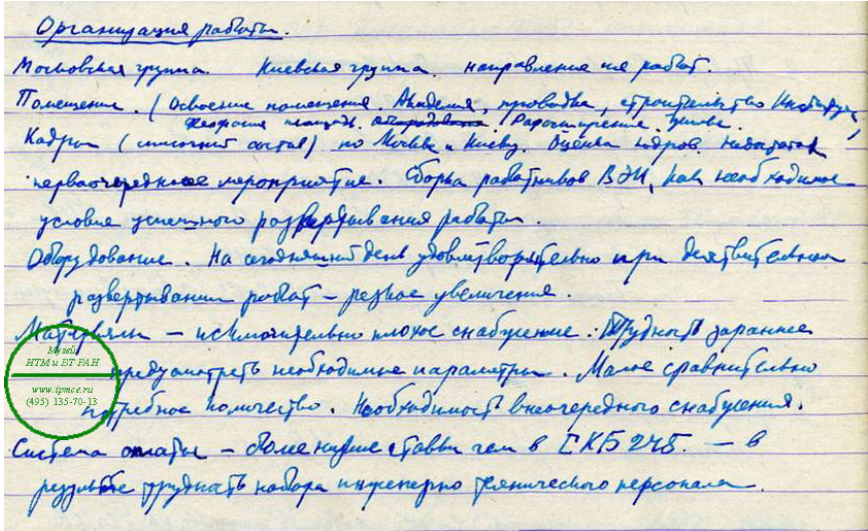 Организация работы.
Московская группа. Киевская группа. направления их работ.
Помещение. (Освоение помещения. Академия, проводка, строительство Института,
площадь. Расширение
Кадры (личный состав) по Москве и Киеву. Оценка кадров. недостаток,
первоочередное мероприятие. Сборка работников ВЭИ, как необходимое
условие успешного развертывания работы.
Оборудование. На сегодняшний день удовлетворительно при действительном
развертывании работ – резкое увеличение.
Матерьялы – исключительно плохое снабжение. Трудность заранее
предусмотреть необходимые параметры. Малое сравнительно
потребное количество. Необходимость внеочередного снабжения.
Система оплаты – более низкие ставки чем в СКБ 245. – в
результате трудность набора инженерно технического персонала.
Музей
ИТМ и ВТ РАН
www.ipmce.ru
(495) 135-70-13